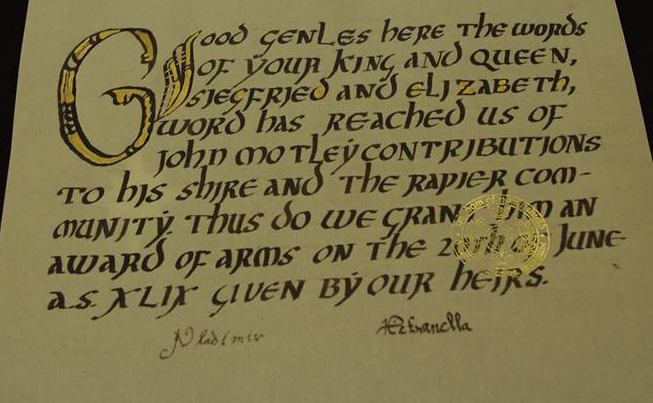 Good Genles here the words
of your King and Queen,
Siegfried and Elizabeth,
Word has reached us of
John Motley contributions
to his shire and the rapier com-
munity. Thus do we grant him an
award of arms on the 20th of June
A.S. XLIX given by our heirs.
Vladimir